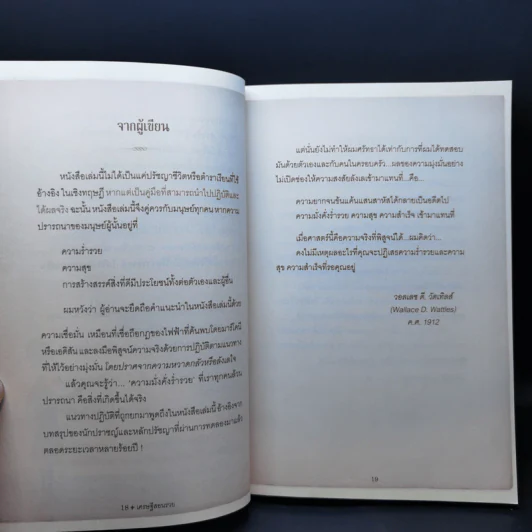 จากผู้เขียน
หนังสือเล่มนี้ไม่ได้เป็นแค่ปรัชญาชีวิตหรือตำราเรียนที่ใช้
อ้างอิง ในเชิงทฤษฎี หากแต่เป็นคู่มือที่สามารถนำไปปฏิบัติและ
ได้ผลจริง ฉะนั้น หนังสือเล่มนี้จึงคู่ควรกับมนุษย์ทุกคน หากความ
ปรารถนาของมนุษย์ผู้นั้นอยู่ที่
ความร่ำรวย
ความสุข
การสร้างสรรค์สิ่งที่ดีมีประโยชน์ทั้งต่อตัวเองและผู้อื่น
ผมหวังว่า ผู้อ่านจะยึดถือคำแนะนำในหนังสือเล่มนี้ด้วย
ความเชื่อมั่น เหมือนที่เชื่อถือกฎของไฟฟ้าที่ค้นพบโดยมาร์โคนี
หรือเอดิสัน และลงมือพิสูจน์ความจริงด้วยการปฏิบัติตามแนวทาง
ที่ให้ไว้อย่างมุ่งมั่น โดยปราศจากความหวาดกลัวหรือลังเลใจ
แล้วคุณจะรู้ว่า... 'ความมั่งคั่งร่ำรวย' ที่เราทุกคนล้วน
ปรารถนา คือสิ่งที่เกิดขึ้นได้จริง
แนวทางปฏิบัติที่ถูกยกมาพูดถึงในหนังสือเล่มนี้ อ้างอิงจาก
บทสรุปของนักปราชญ์และหลักปรัชญาที่ผ่านการทดลองมาแล้ว
ตลอดระยะเวลาหลายร้อยปี !
18 ♦ เศรษฐีสอนรวย
แต่นั่นยังไม่ทำให้ผมศรัทธาได้เท่ากับการที่ผมได้ทดสอบ
มันด้วยตัวเองและกับคนในครอบครัว...ผลของความมุ่งมั่นอย่าง
ไม่เปิดช่องให้ความสงสัยลังเลเข้ามาแทนที่...คือ...
ความยากจนข้นแค้นแสนสาหัสได้กลายเป็นอดีตไป
ความมั่งคั่งร่ำรวย ความสุข ความสำเร็จ เข้ามาแทนที่
เมื่อศาสตร์นี้คือความจริงที่พิสูจน์ได้...ผมคิดว่า...
คงไม่มีเหตุผลอะไรที่คุณจะปฏิเสธความร่ำรวยและความ
สุข ความสำเร็จที่รอคุณอยู่
วอลเลซ ดี. วัตเทิลส์
(Wallace D. Wattles)
ค.ศ. 1912
19